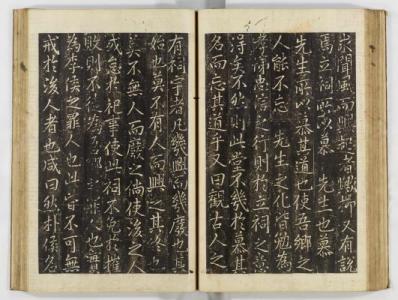 求聞風而興起者懒𫆀又有説
焉立祠所以慕 先生也慕
先生所以慕其道也使吾鄉之
人能不忘 先生之化皆勉為
孝悌忠信之行則於立祠之意
得矣不然則此堂不幾於慕其
名而忘其道乎又曰觀古人之
有祠宇者凡幾興而幾廢也其
始也莫不有人而興之其終也
莫不無人而廢之倘使後之人
或怠於祀事使此祠不免於摧
敗則不徒為 罪人也
為李侯之罪人也 皆不可無
戒於後人者也咸曰然李侯名